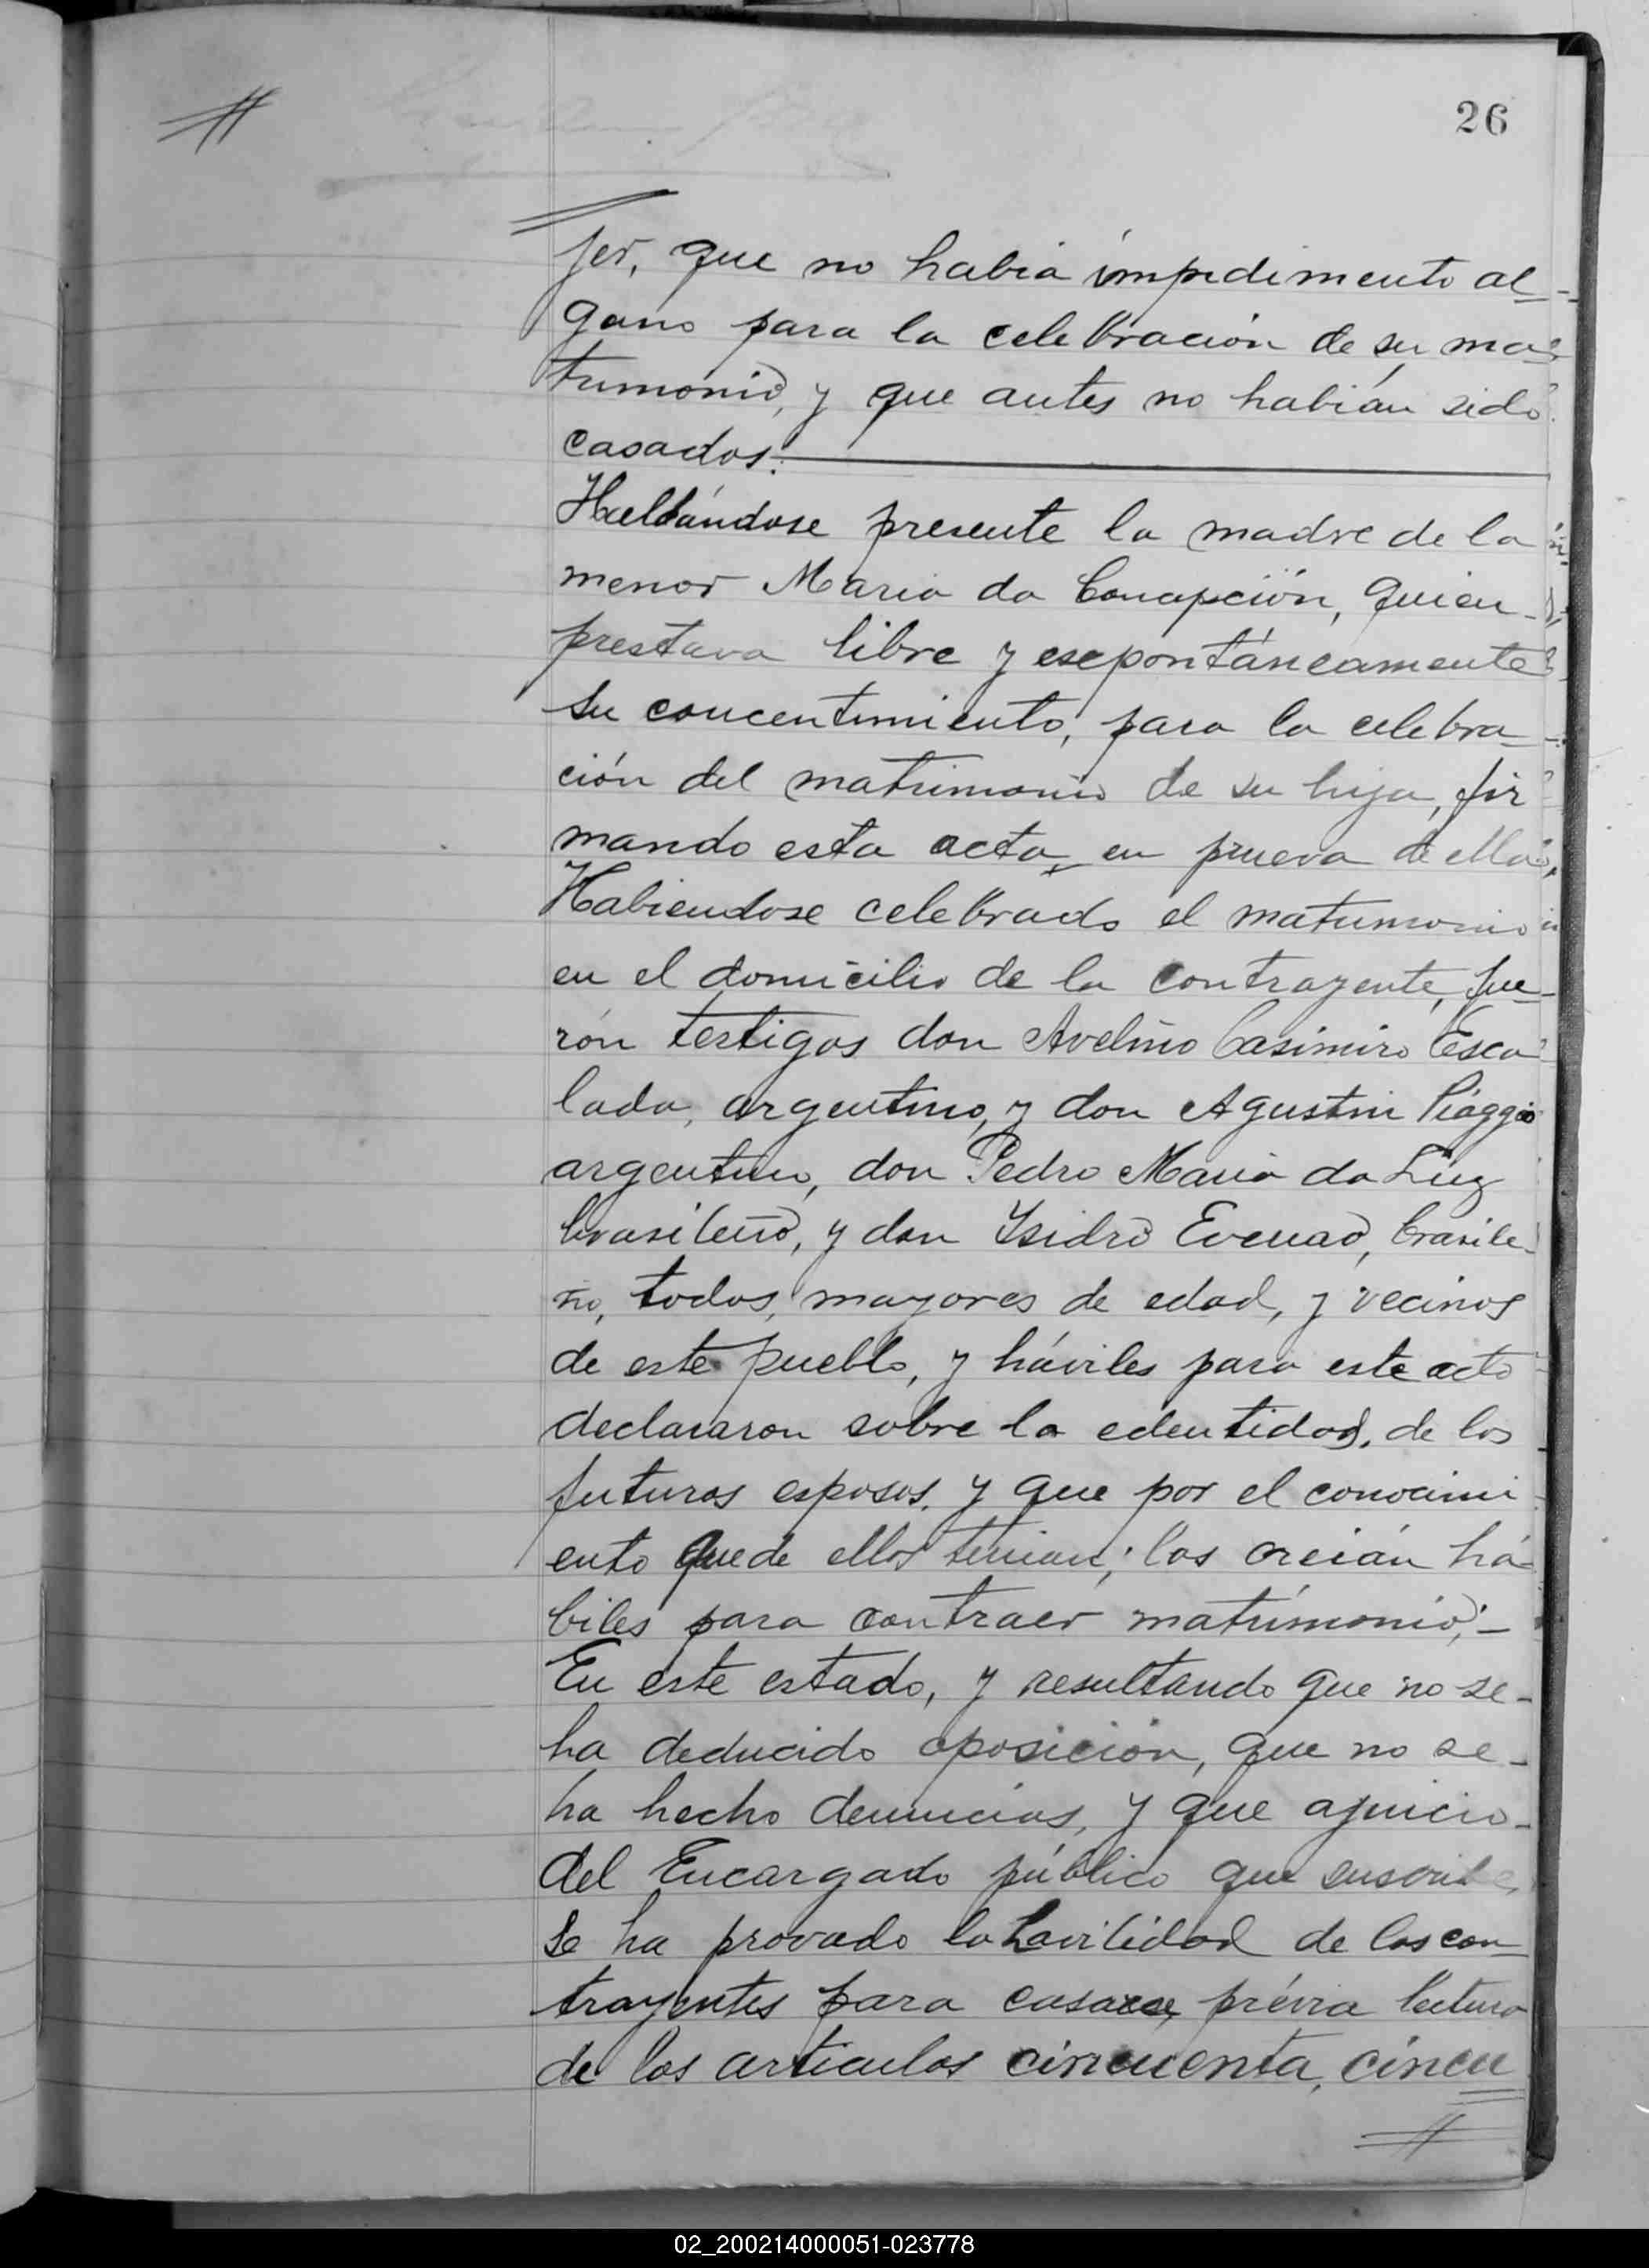 26
jer, que no habia impedimento al-
guno para la celebración de su ma-
trimonio, y que antes no habían sido
casados.
Hallándose presente la madre de la
menor Maria da Concepción, quien
prestava libre y esepontáneamente
su concentimiento, para la celebra-
ción del matrimonio de su hija, fir
mando esta acta, en prueva de ello,
Habiendose celebrado el matrimonio
en el domicilio de la contrayente, fue-
rón testigos don Avelino Casimiro Esca
lada, argentino, y don Agustin Piaggio
argentino, don Pedro Maria da Luz
brasileño, y don Ysidro Evenao, brasile
ño, todos, mayores de edad, y vecinos
de este pueblo, y háviles para este acto
declararon sobre la edentidad, de los
futuros esposos, y que por el conocimi
ento que de ellos tenian; los creián há-
biles para contraer matrimonio;-
En este estado, y resultando que no se-
ha deducido oposición, que no se-
ha hecho denuncias, y que ajuicio-
del Encargado público que suscribe,
se ha provado la havilidad de los con-
trayentes para casarse, prévia lectura
de los articulos cincuenta, cincu
02_200214000051-023778